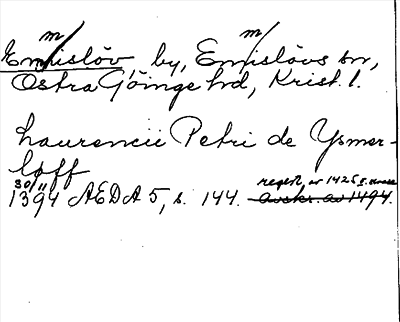 Emmislöv, by, Emmislövs sn,
Östra Göinge hd, Krist. l.
Laurencii Petri de Ysmer-
løff
30/11 regest av 1425
1394 AEDA 5, s. 144. avskr. av 1494.